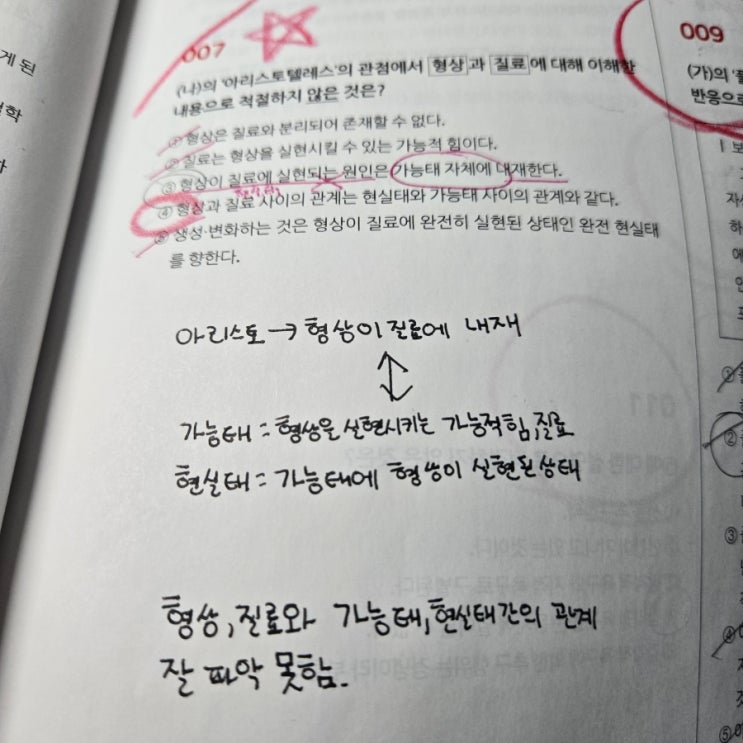 게 된
학
007
009
(나)의 '아리스토텔레스'의 관점에서 형상과 질료에 대해 이해한
내용으로 적절하지 않은 것은?
(가)의
반응으로
① 형상은 질료와 분리되어 존재할 수 없다.
② 질료는 형상을 실현시킬 수 있는 가능적 힘이다.
③ 형상이 질료에 실현되는 원인은 가능태 자체에 내재한다.
④ 형상과 질료 사이의 관계는 현실태와 가능태 사이의 관계와 같다.
⑤ 생성·변화하는 것은 형상이 질료에 완전히 실현된 상태인 완전 현실태
를 향한다.
아리스토 → 형상이 질료에 내재
가능태 = 형상을 실현시키는 가능적힘, 질료
현실태 = 가능태에 형상이 실현된상태
형상, 질료와 가능태, 현실태간의 관계
잘 파악 못함.